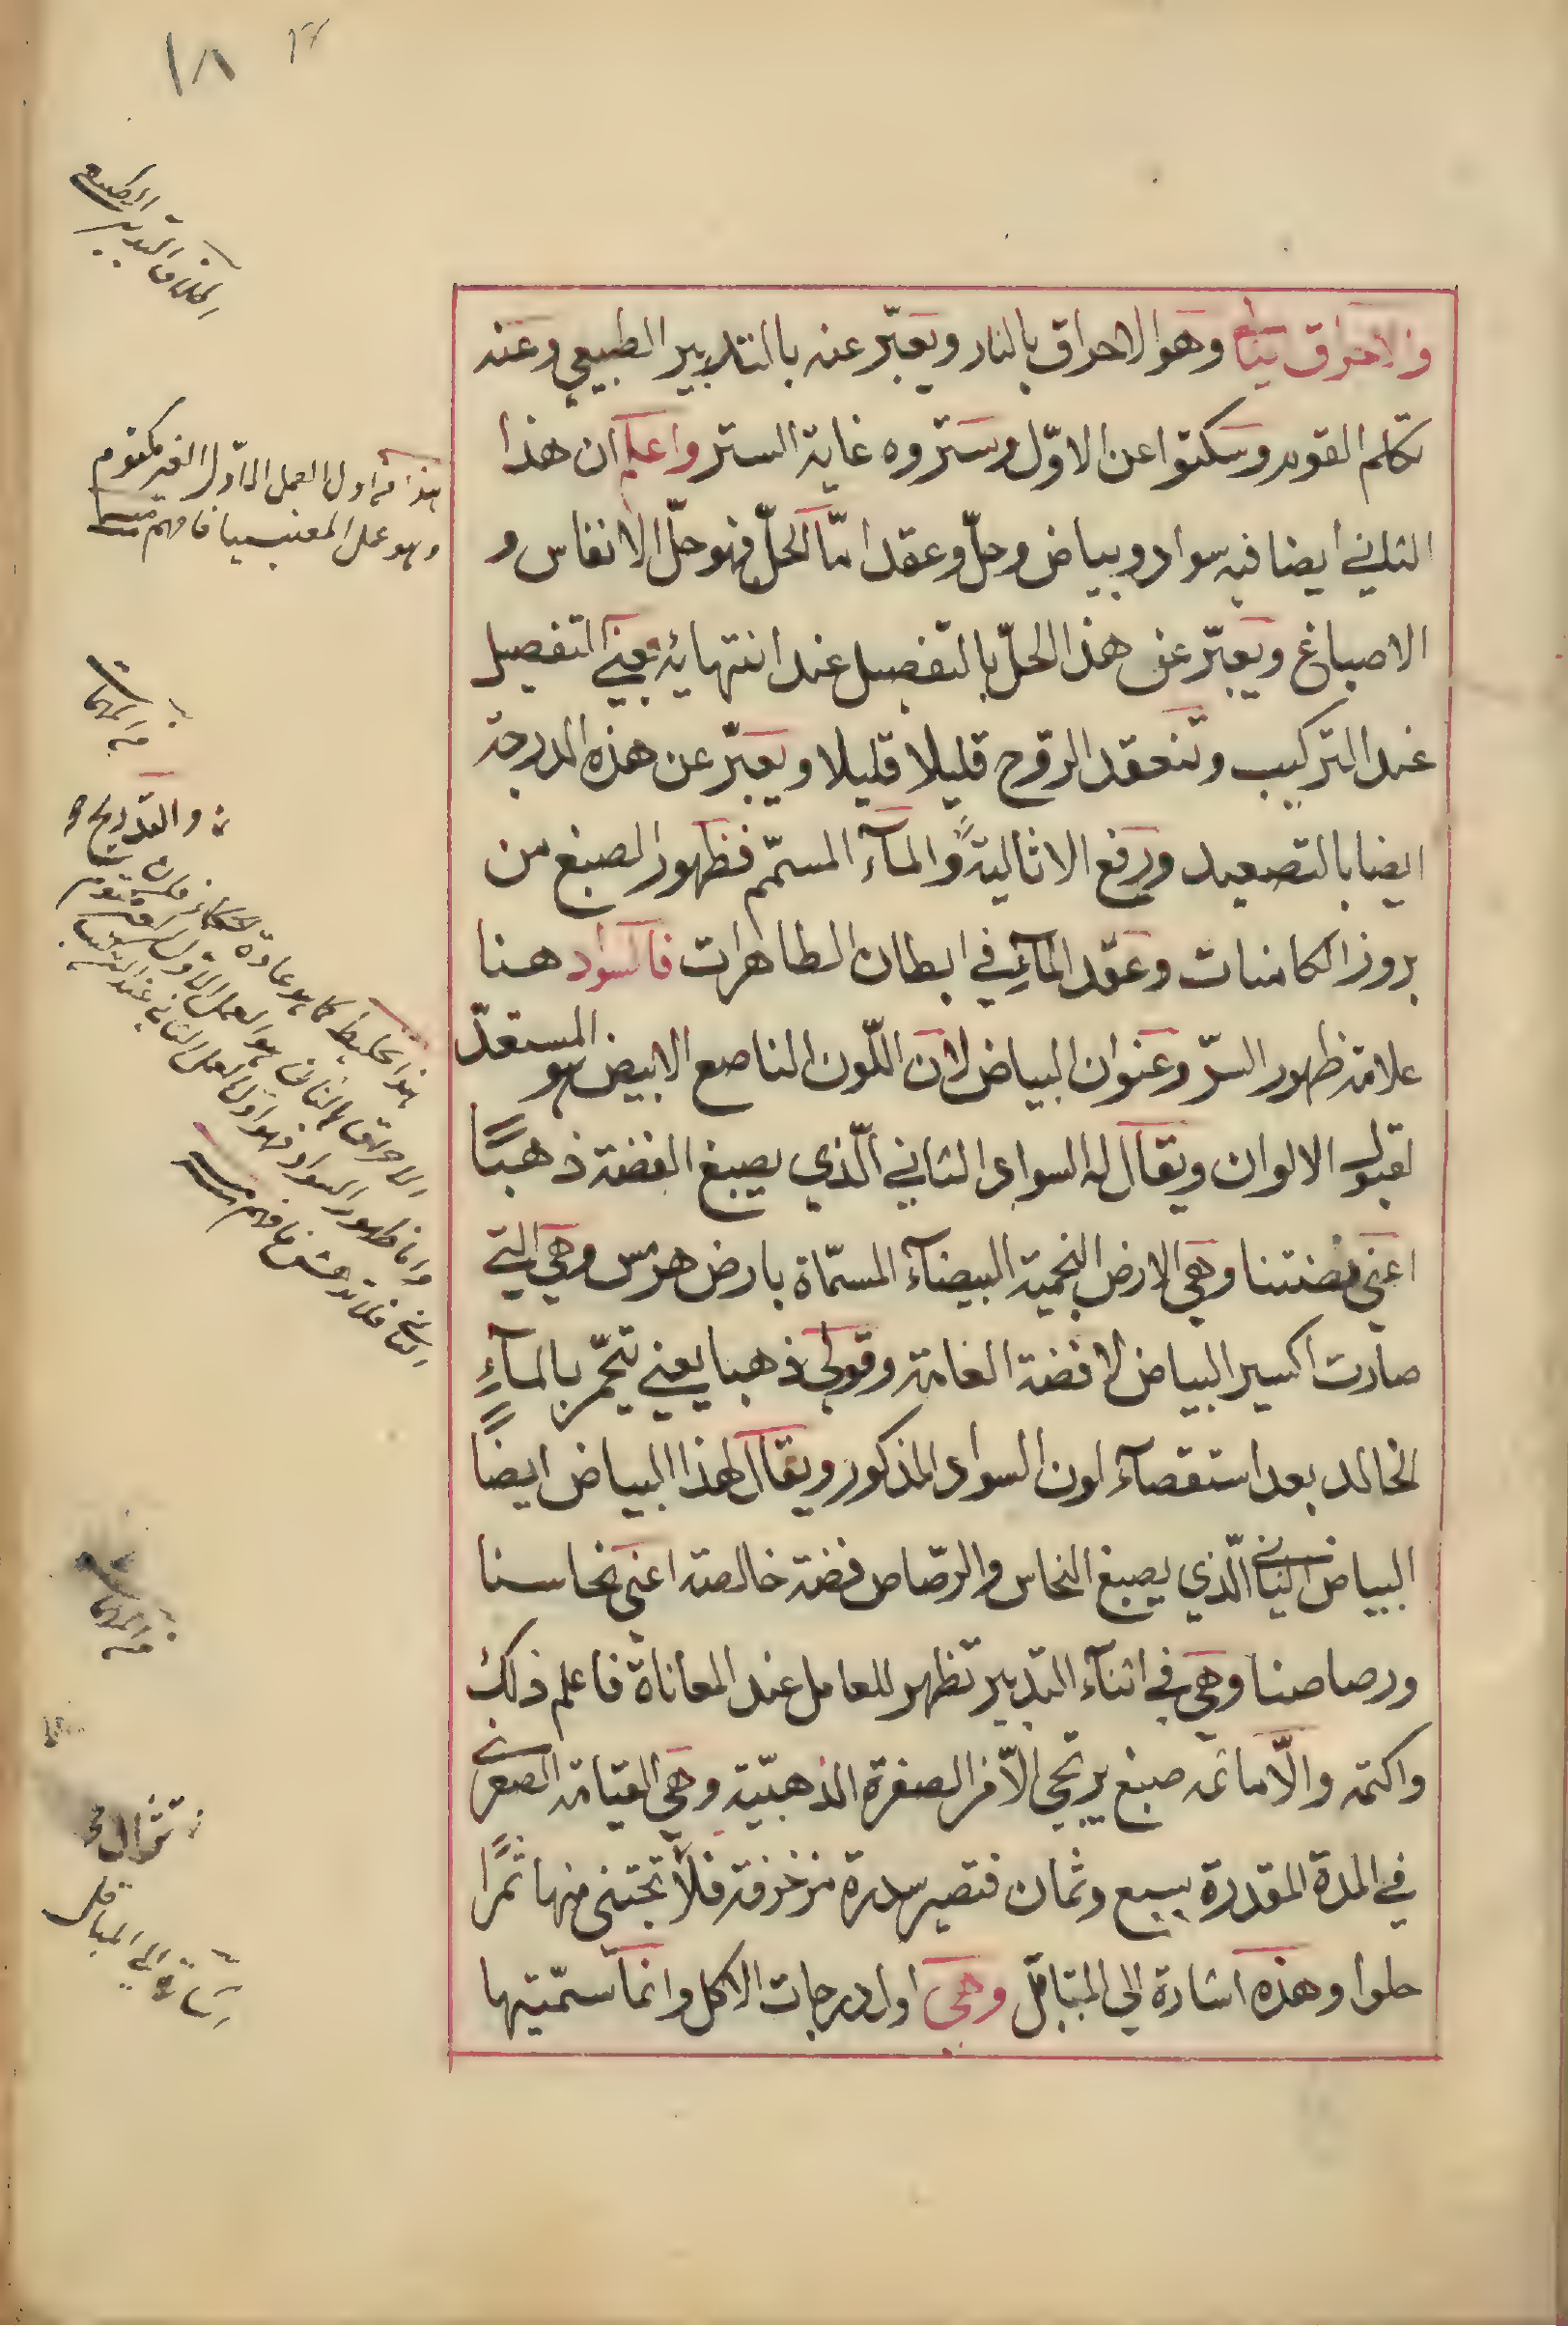 ١٨
والاحتراق وهو الاحراق بالنار ويعبّر عنه بالتدبير الطبيعي وعنه
تكلم القوم وسكتوا عن الاوّل وستروه غاية الستر واعلم ان هذا
الثاني ايضا فيه سواد وبياض وحلّ وعقد امّا الحلّ فهو حلّ الانفاس و
الاصباغ ويعبّر عن هذا الحلّ بالتفصيل عند انتهائه يعني التفصيل
عند التركيب وتنعقد الروح قليلا قليلا ويعبّر عن هذه الدرجة
ايضا بالتصعيد ورفع الاثالية والمآء المسمّم فظهور الصبغ من
بروز الكامنات وعقد المآء في ابطان الطاهرات فالسواد هنا
علامة ظهور السرّ وعنوان البياض لان اللّون الناصع الابيض هو المستعدّ
لقبول الالوان ويقال له السواد الثاني الّذي يصبغ الفضة ذهبًا
اعني فضتنا وهي الارض النجمية البيضآء المسمّاة بارض هرمس وهي التي
صارت اكسير البياض لا فضة العامة وقولي ذهبا يعني تحمّر بالمآءِ
الخالد بعد استقصآء لون السواد المذكور ويقال لهذا البياض ايضًا
البياض الثاني الّذي يصبغ النحاس والرصّاص فضة خالصة اعني نحاسنا
ورصاصنا وهي في اثنآء التدبير تظهر للعامل عند المعاناة فاعلم ذلك
واكتمه والّا ما ثمه صبغ يرتجى الّا من الصفرة الذهبيّة وهي القيامة الصغرى
في المدة المقدرة بسبع وثمان فتصير سدرة مزخرفة فلا تجتنى منها ثمرًا
حلوا وهذه اشارة الى المتبامّل وهي اول درجات الاكل وانما سمّيتها
بخلاف التدبير الطبيعي
هذا في اول العمل الاوّل الغير مكتوم
وهو عمل المغنيسيا فافهم
والتدريج
هذا تخليط كما هو عادة الحكماء
الاحراق بالنار هو العمل الاوّل
واما ظهور السواد فهو اول العمل الثاني عند التركيب
فلا تدهش فافهم